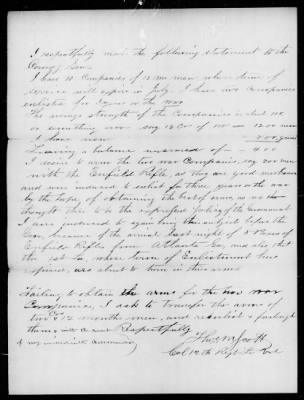 I respectfully make the following statement to the
Comdg Gen.
I have 10 Companies of 12 mos men whose time of
service will expire in July. I have two Companies
enlisted for 3 years or the war
The average strength of the Companies is about 100
or something near say 12 Cos of 100 — 1200 men
I have now — 800 guns
Leaving a balance unarmed of — 400
I desire to arm the two war Companies, say 200 men
with the Enfield Rifle, as they are good marksmen
and were induced to enlist for three years or the war
by the hope of obtaining the best of arms, as was
thought this to be the expressed policy of the Government
I am induced to again bring this subject before the
Gen. because of the arrival last night of Boxes of
Enfield Rifles from Atlanta Ga, and also that
the 1st La, whose term of Enlistment has
expired, are about to turn in their arms

Failing to obtain the arms for the two war
Companies, I ask to transfer the arms of
two Cos 12 month men, and reenlist & furlough
them Respectfully
Thos M Scott
Col 12th Regt La Vol